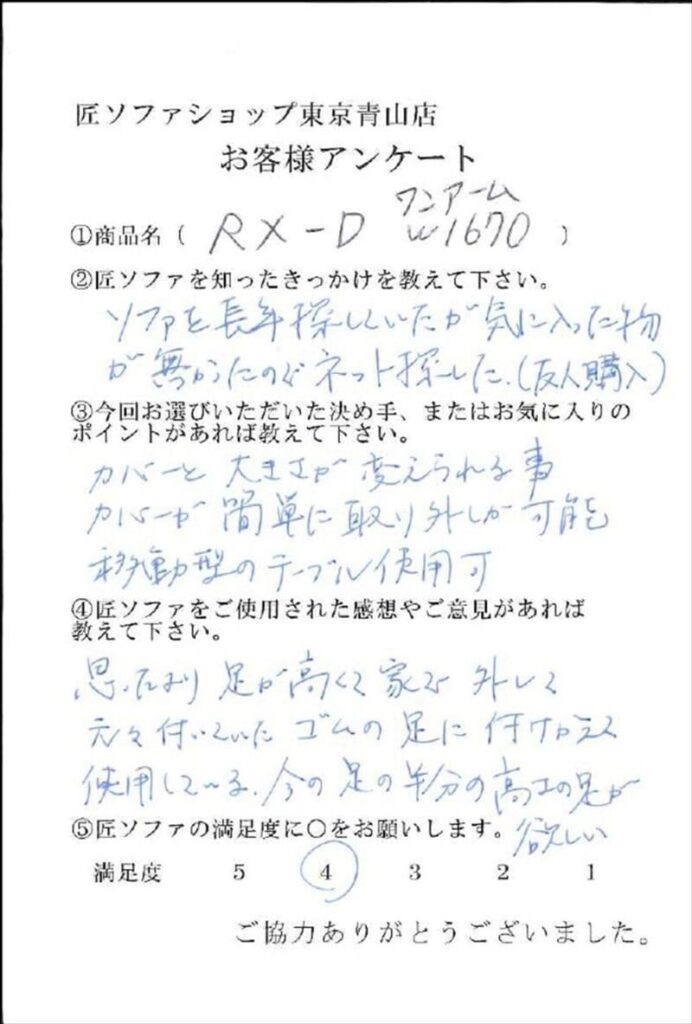 匠ソファショップ東京青山店
お客様アンケート
ワンアーム
①商品名（ RX-D W1670 ）
②匠ソファを知ったきっかけを教えて下さい。
ソファを長年探していたが気に入った物
が無かったのでネット探した.(友人購入)
③今回お選びいただいた決め手、またはお気に入りの
ポイントがあれば教えて下さい。
カバーと大きさが変えられる事
カバーが簡単に取り外しが可能
移動型のテーブル使用可
④匠ソファをご使用された感想やご意見があれば
教えて下さい。
思ったより足が高くて家で外して
元々付いていたゴムの足に付けかえて
使用している.今の足の半分の高さの足が
欲しい
⑤匠ソファの満足度に〇をお願いします。
満足度 5 4 3 2 1
ご協力ありがとうございました。